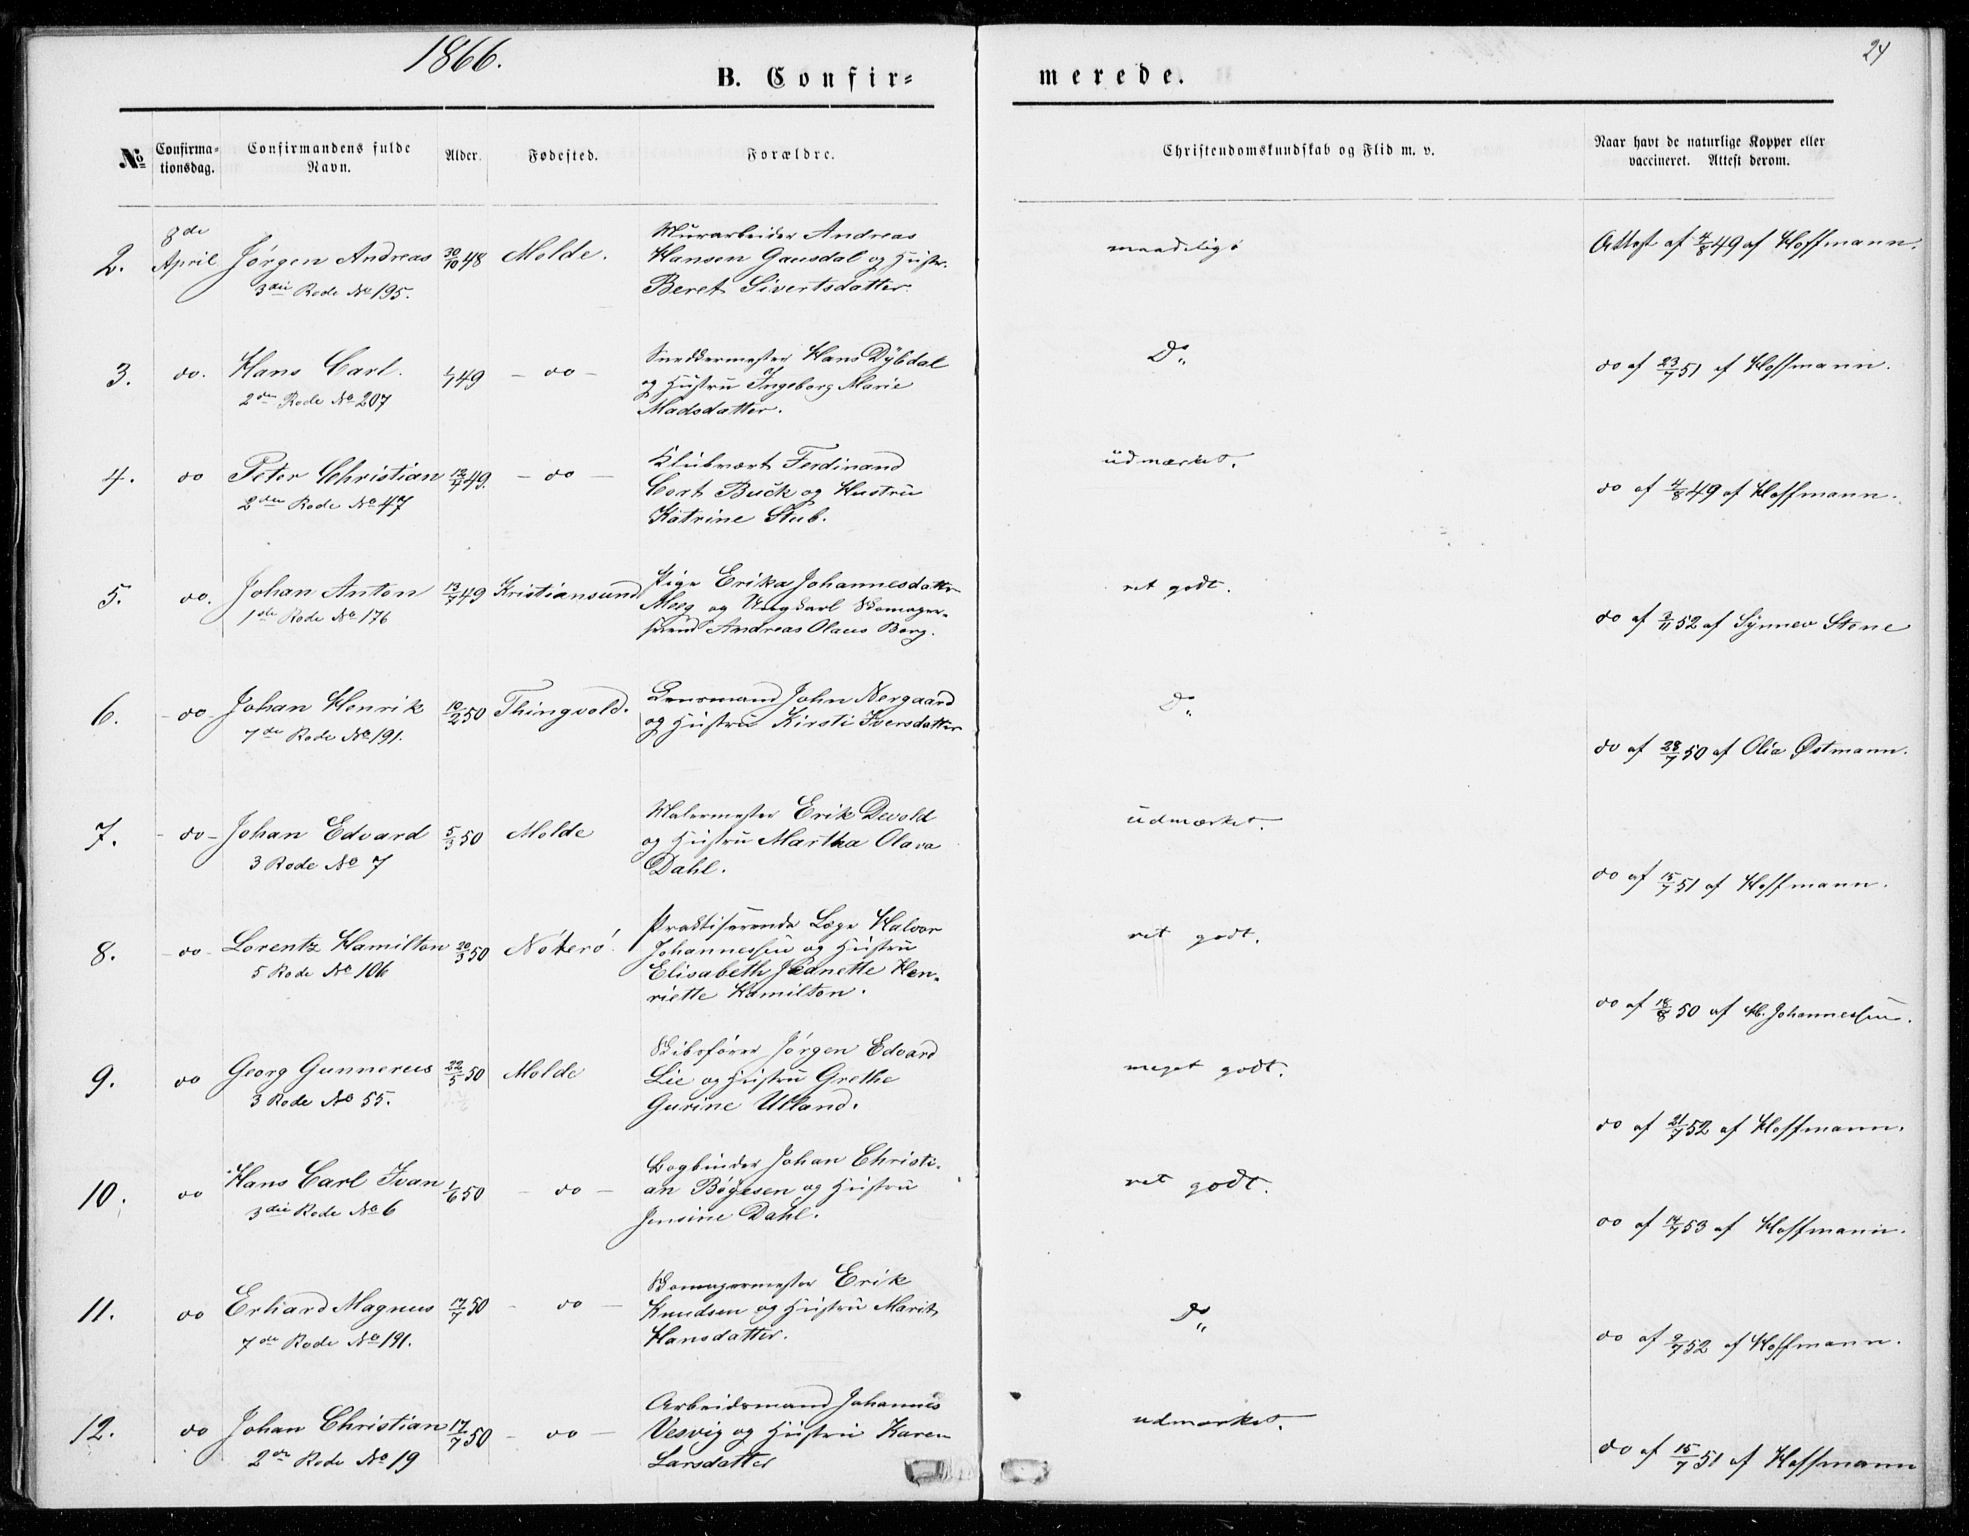 1866.
24
B. Confir-
merede.
No
Confirma-
tionsdag.
Confirmandens fulde
Navn.
Alder.
Fødested.
Forældre.
Christendomskundskab og Flid m. v.
Naar havt de naturlige Kopper eller
vaccineret. Attest derom.
2. 8de April Jørgen Andreas 30/10 48 Molde. Murarbeider Andreas
3die Rode No 195. Hansen Gausdal og Hustr.
Beret Sivertsdatter.
maadelig
Attest af 4/8 49 af Hoffmann.
3. do. Hans Carl. 1/1 49 - do - Snedkermester Hans Dybdal
2den Rode No 207 og Hustru Ingeborg Marie
Madsdatter.
Do
do af 23/7 51 af Hoffmann.
4. do Peter Christian 12/4 49. - do - Klubvært Ferdinand
2den Rode No 47 Cort Buck og Hustru
Katrine Stub.
udmærket.
do af 4/8 49 af Hoffmann.
5. do. Johan Anton 13/7 49 Kristiansund Pige Erika Johannesdatter
1ste Rode No 176 Meeg og Ungkarl Skomager-
svend Andreas Olaus Berg.
ret godt.
do af 2/11 52 af Synnev Stene
6. - do - Johan Henrik 10/2 50 Thingvold. Lensmand John Nergaard
7de Rode No 191. og Hustru Kirsti Iversdatter
Do
do af 28/7 50 af Olia Østmann.
7. - do - Johan Edvard 5/3 50 Molde Malermester Erik Devold
3 Rode No 7 og Hustru Martha Olava
Dahl.
udmærket.
do af 15/7 51 af Hoffmann.
8. - do - Lorentz Hamilton 20/3 50 Nøterø. Praktiserende Læge Halvor
5 Rode No 106 Johannessen og Hustru
Elisabeth Jeanette Hen-
riette Hamilton.
ret godt.
do af 18/8 50 af H. Johannessen.
9. do Georg Gunnerus 22/5 50 Molde Skibsfører Jørgen Edvard
3 Rode No 55. Lie og Hustru Grethe
Gurine Utland.
meget godt.
do af 21/7 52 af Hoffmann.
10. do Hans Carl Ivan 1/6 50 - do - Bogbinder Johan Christi-
3die Rode No 6 an Bøgesen og Hustru
Jensine Dahl.
ret godt.
do af 14/7 53 af Hoffmann.
11. do Erhard Magnus 17/7 50 - do - Skomagermester Erik
7de Rode No 191. Knudsen og Hustru Marit
Hansdatter.
Do
do af 2/7 52 af Hoffmann.
12. do Johan Christian 17/7 50 - do - Arbeidsmand Johannes
2de Rode No 19 Vesvig og Hustru Karen
Larsdatter
udmærket.
do af 15/7 51 af Hoffmann